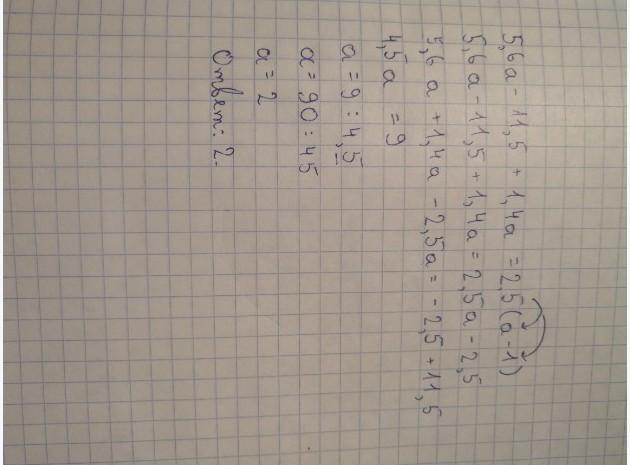 5,6a - 11,5 + 1,4a = 2,5(a-1)
5,6a - 11,5 + 1,4a = 2,5a - 2,5
5,6a + 1,4a - 2,5a = -2,5 + 11,5
4,5a = 9
a = 9 : 4,5
a = 90 : 45
a = 2
Ответ: 2.